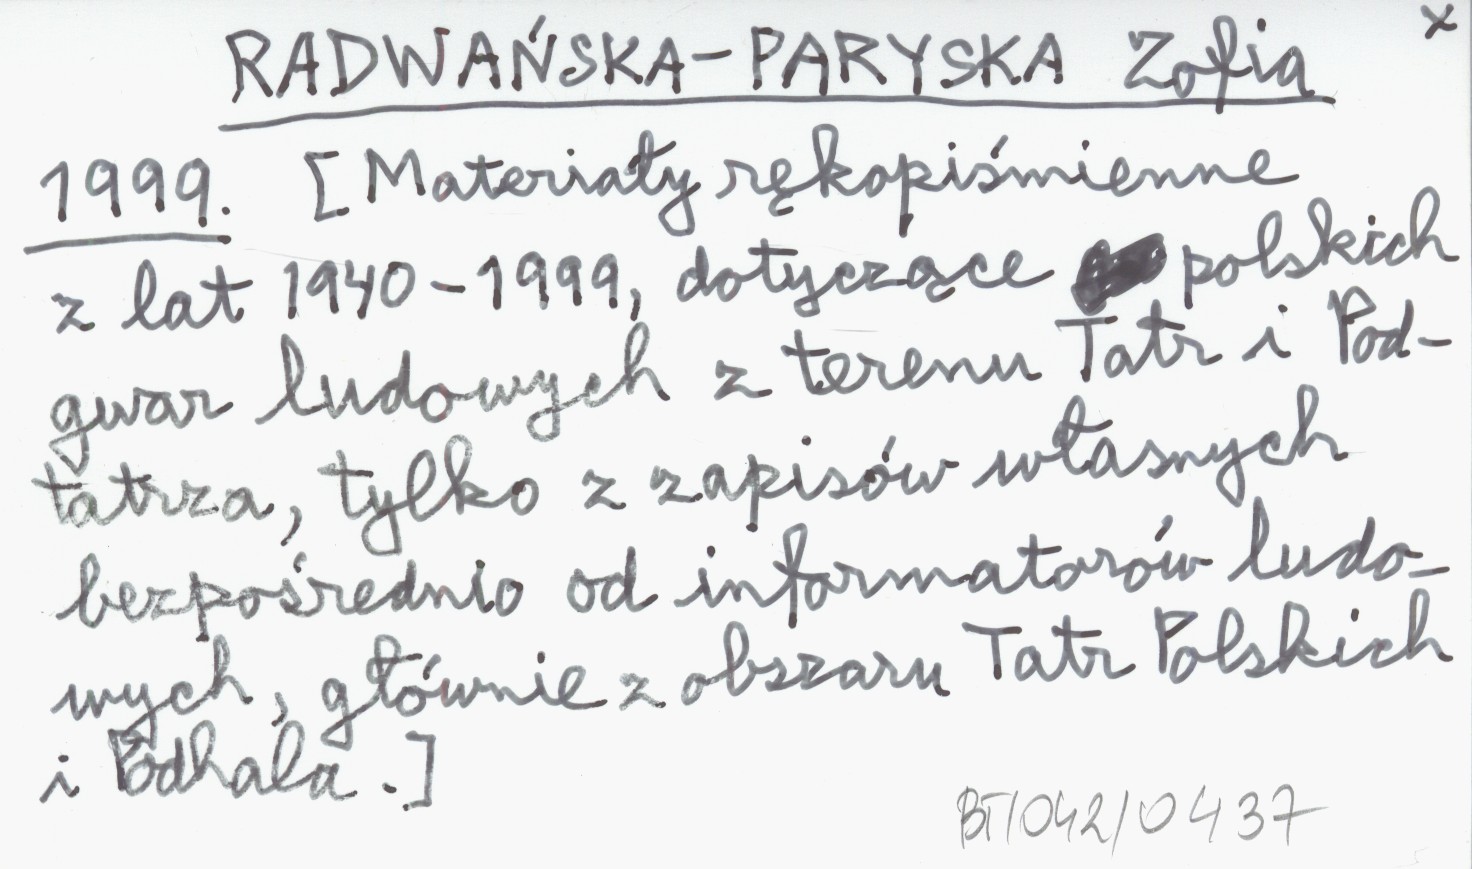 x
RADWAŃSKA-PARYSKA Zofia
1999. [Materiały rękopiśmienne
z lat 1940-1999, dotyczące polskich
gwar ludowych z terenu Tatr i Pod-
tatrza, tylko z zapisów własnych
bezpośrednio od informatorów ludo-
wych, głównie z obszaru Tatr Polskich
i Podhala.]
BT/042/0437